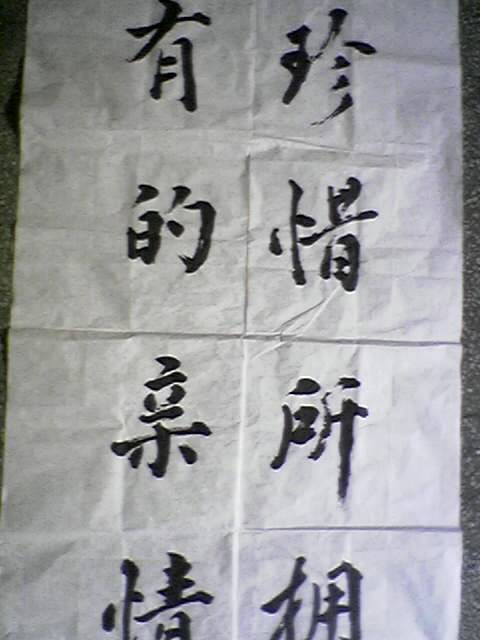 珍惜所拥
有的亲情